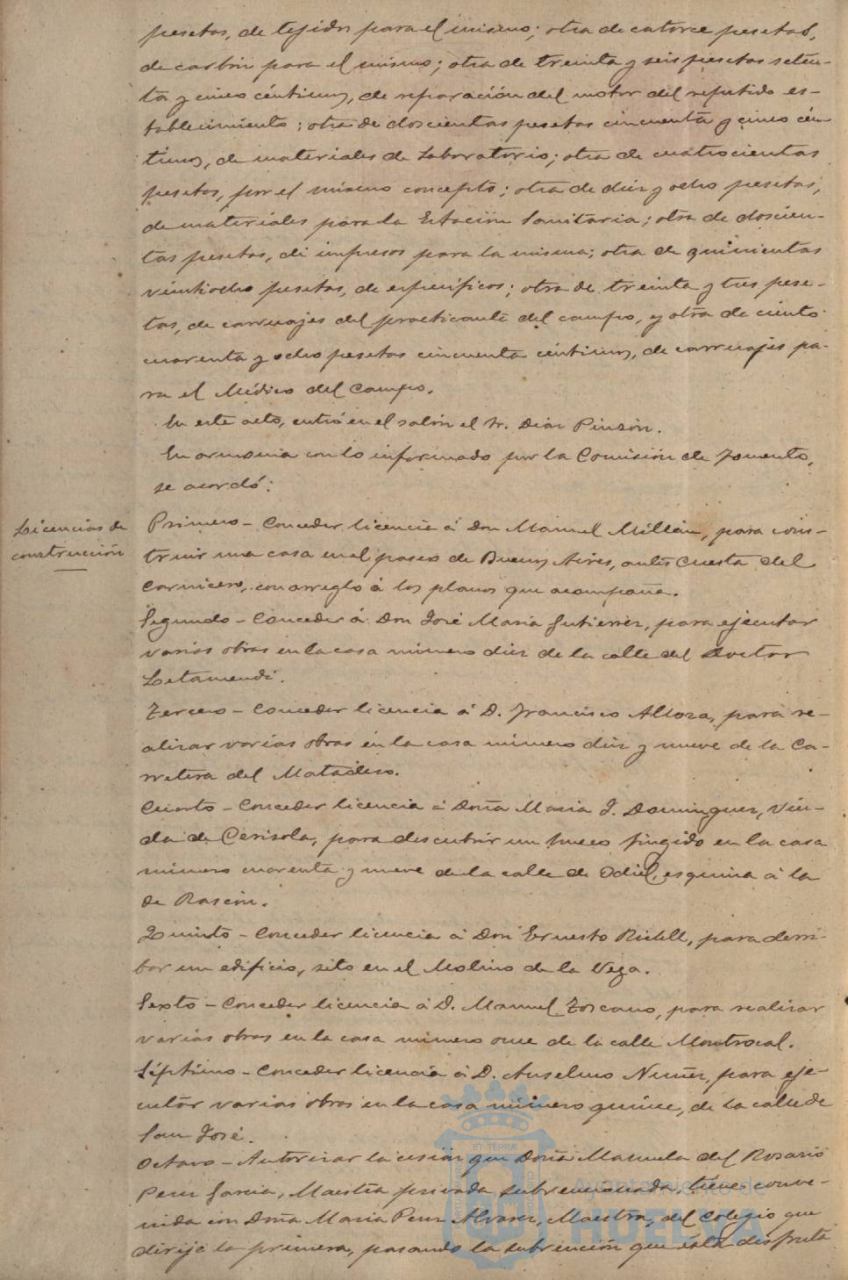 pesetas, de tejidos para el mismo; otra de catorce pesetas,
de carbón para el mismo; otra de treinta y seis pesetas seten-
ta y cinco céntimos, de reparación del motor del repetido es-
tablecimiento; otra de doscientas pesetas cincuenta y cinco cén-
timos, de materiales de Laboratorio; otra de cuatrocientas
pesetas, por el mismo concepto; otra de diez y ocho pesetas,
de materiales para la Estación Sanitaria; otra de doscien-
tas pesetas, de impresos para la misma; otra de quinientas
veintiocho pesetas, de específicos; otra de treinta y tres pese-
tas, de carruajes del practicante del campo, y otra de ciento
cuarenta y ocho pesetas cincuenta céntimos, de carruajes pa-
ra el Médico del Campo.
En este acto, entró en el salón el Sr. Díaz Pinzón.
En armonía con lo informado por la Comisión de Fomento,
se acordó:
Licencias de
construcción
Primero - Conceder licencia á Don Manuel Millán, para cons-
truir una casa en el paseo de Buenos Aires, antes Cuesta del
Carnicero, con arreglo á los planos que acompaña.
Segundo - Conceder á Don José María Gutierrez, para ejecutar
varias obras en la casa número diez de la calle del Doctor
Letamendi.
Tercero - Conceder licencia á D. Francisco Alloza, para re-
alizar varias obras en la casa número diez y nueve de la Ca-
rretera del Matadero.
Cuarto - Conceder licencia á Doña María J. Dominguez, viu-
da de Cerisola, para descubrir un hueco fingido en la casa
número cuarenta y nueve de la calle de Odiel, esquina á la
de Rascón.
Quinto - Conceder licencia á Don Ernesto, para derri-
bar un edificio, sito en el Molino de la Vega.
Sexto - Conceder licencia á D. Manuel Toscano, para realizar
varias obras en la casa número once de la calle Montrocal.
Séptimo - Conceder licencia á D. Anselmo Nuñez, para eje-
cutar varias obras en la casa número quince, de la calle de
San José.
Octavo - Autorizar la cesión que Doña Manuela del Rosario
Perez García, Maestra privada subvencionada, tiene conve-
nida con Doña María Perez Alvarez, Maestra, del Colegio que
dirije la primera, pasando la subvención que ésta disfruta
Ayuntamiento de
HUELVA